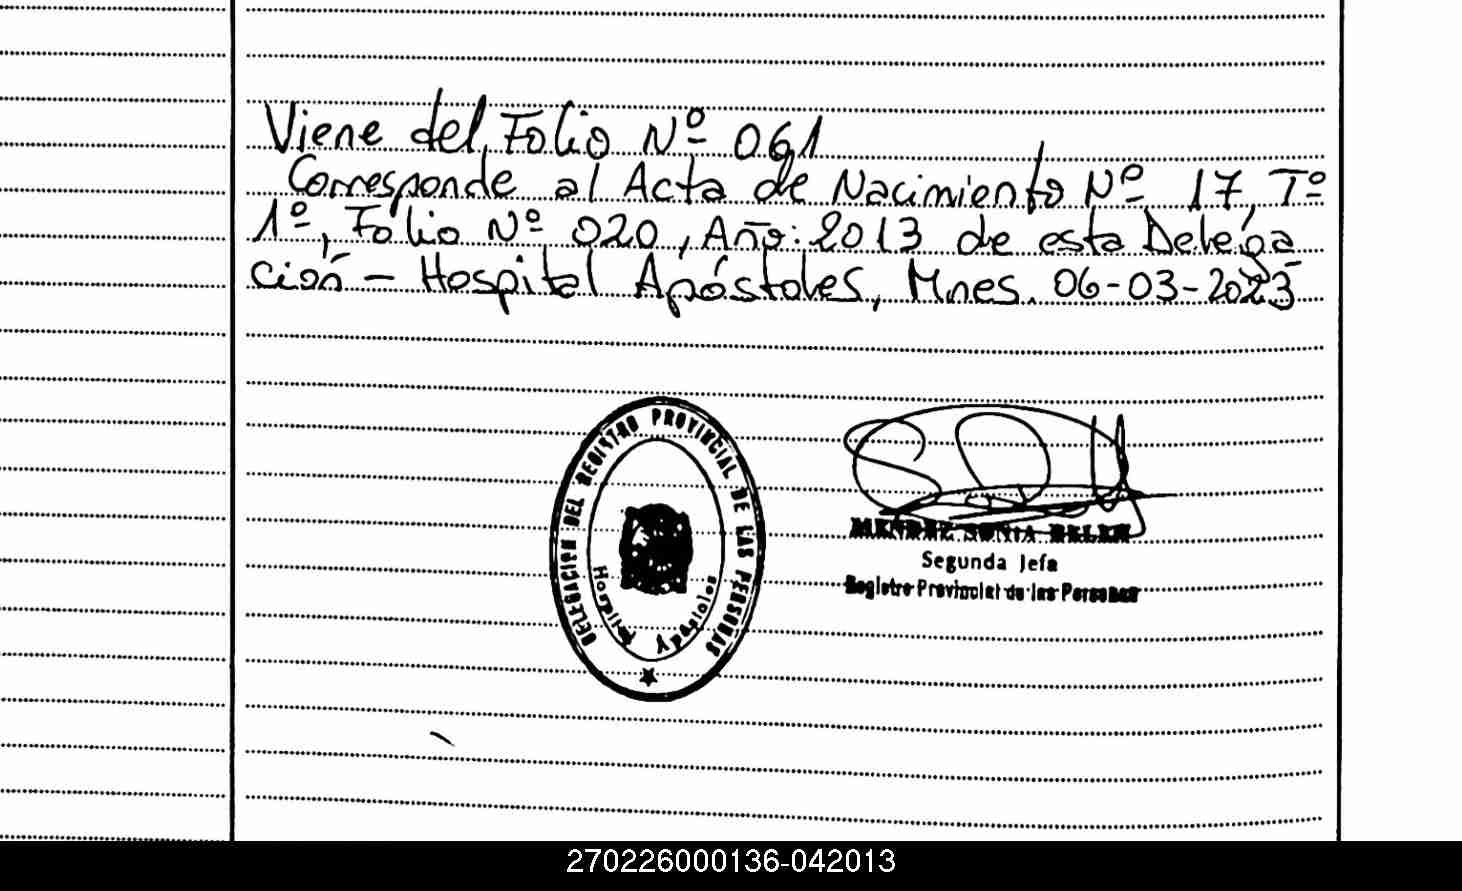 Viene del Folio Nº 061
Corresponde al Acta de Nacimiento Nº 17, Tº
1º, Folio Nº 020, Año: 2013 de esta Delega
ción - Hospital Apóstoles, Mnes. 06-03-2023
DELEGACION DEL REGISTRO PROVINCIAL DE LAS PERSONAS
Hospital Apóstoles
MENDEZ SONIA BELEN
Segunda Jefa
Registro Provincial de las Personas
270226000136-042013